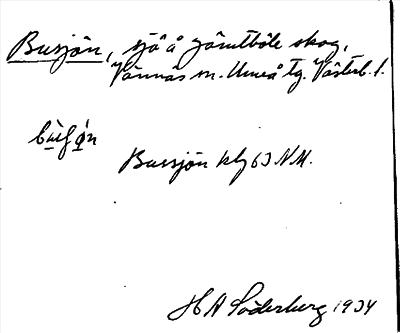 Busjön, sjö å Jämtböle skog,
Vännäs sn. Umeå tg. Västerb. l.
Bussjön kbg 63 NM.
H A Söderberg 1934